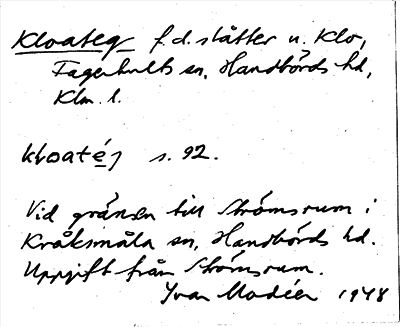 Kloateg f.d. slåtter u. Klo,
Fagerhults sn, Handbörds hd,
Klm. l.
kloaté̱g s. 92.
Vid gränsen till Strömsrum i
Kråksmåla sn, Handbörds hd.
Uppgift från Strömsrum.
Ivar Modéer 1948